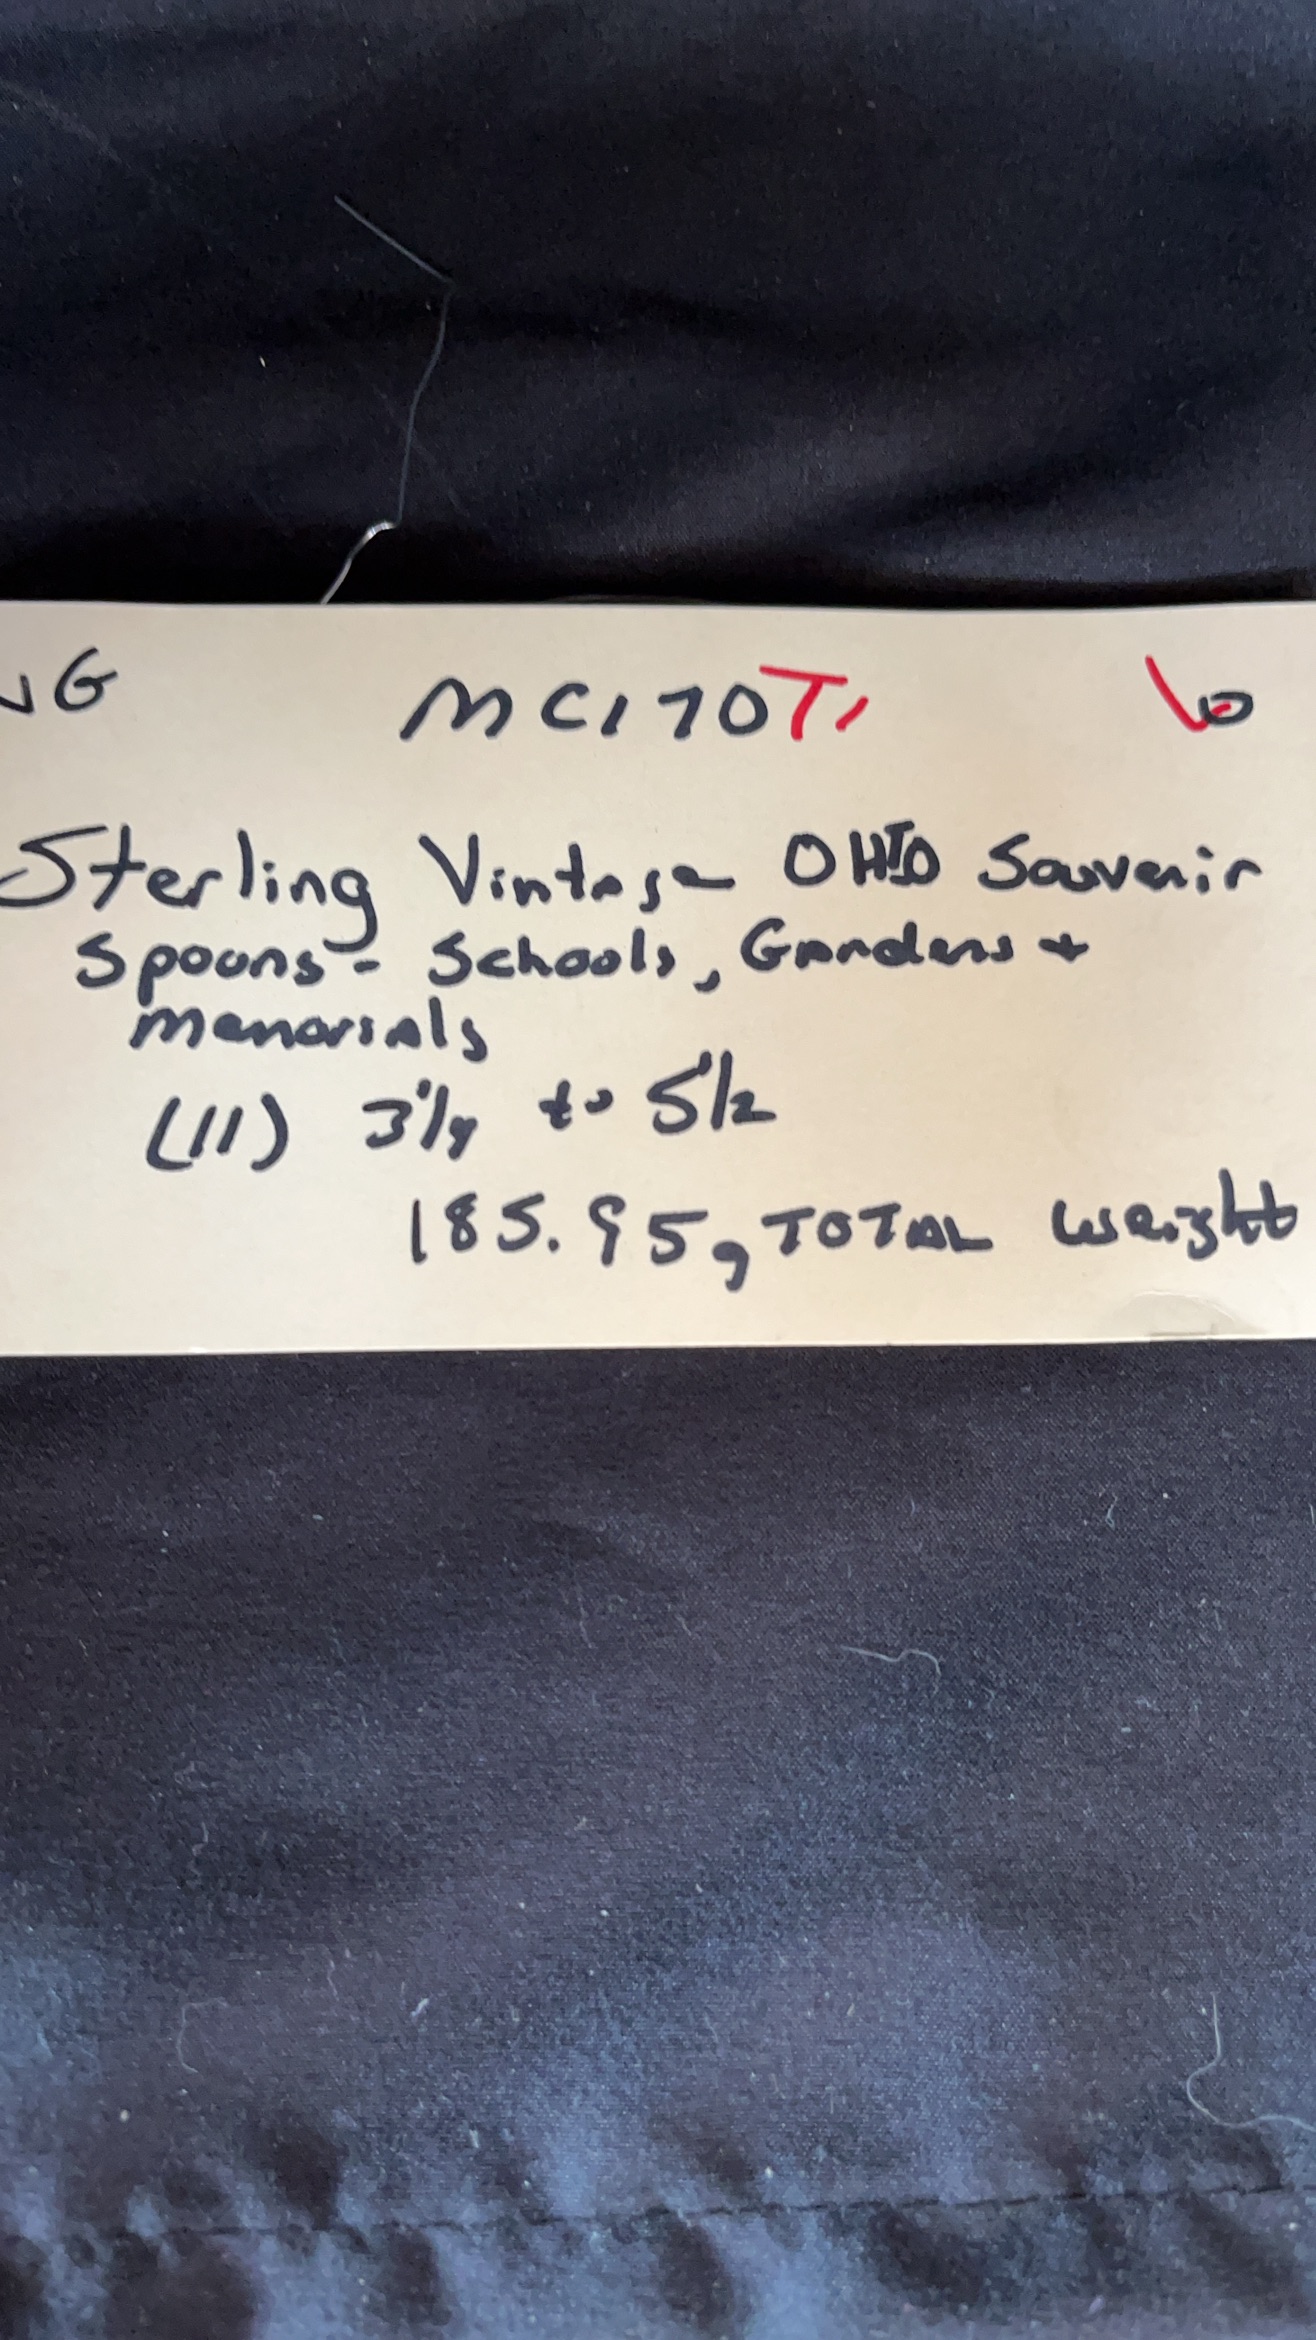 NG MC170T1 6
Sterling Vintage OHIO Souvenir
Spoons - Schools, Gardens +
memorials
(11) 3 1/4 to 5 1/2
185.95g TOTAL weight